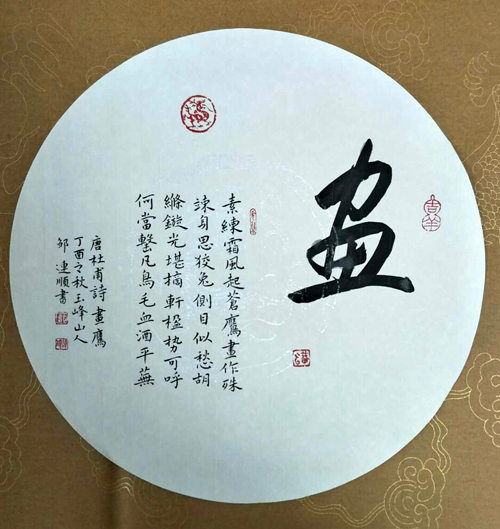 畫
吉羊
素練霜風起蒼鷹畫作殊
竦身思狡兔側目似愁胡
縧鏇光堪摘軒楹势可呼
何當擊凡鳥毛血洒平蕪
唐杜甫詩畫鷹
丁酉之秋玉峰山人
邹連順書